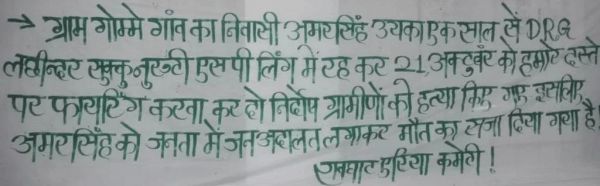 → ग्राम गोम्मे गांव का निवासी अमरसिंह उयका एक साल से DRG
लखीन्दर सुक्कु नुरुटी एस पी लिंग में रह कर 21, अक्टुबर को हमारे दस्ते
पर फायरिंग करवा कर दो निर्दोष ग्रामीणों की हत्या किए गए इसलिए
अमरसिंह को जनता में जन अदालत लगाकर मौत का सजा दिया गया है।
रावघाट एरिया कमेटी !